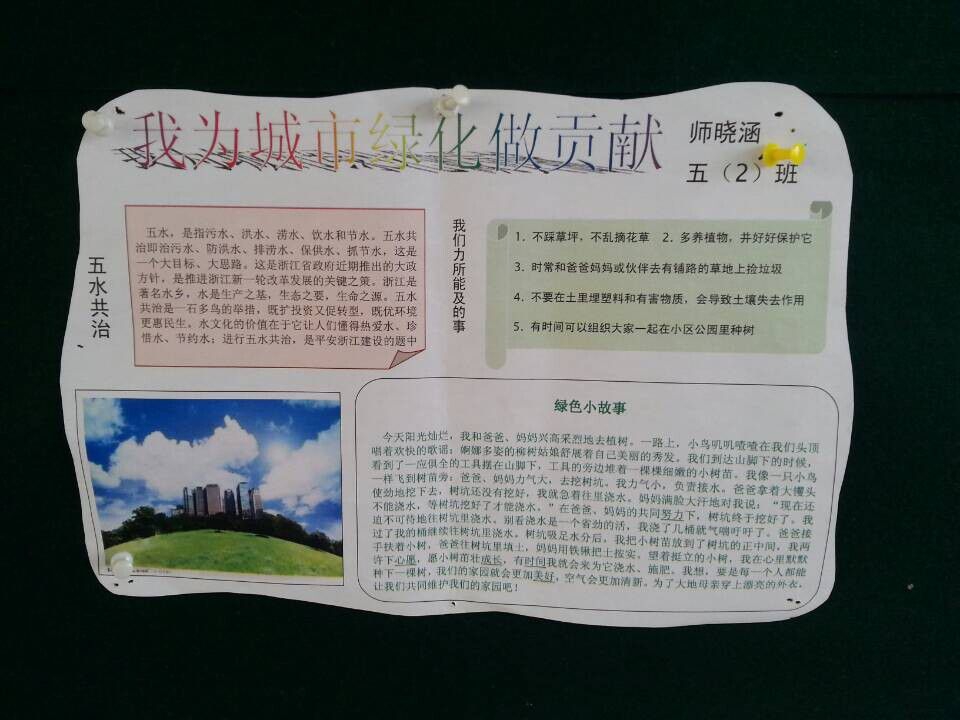 我为城市绿化做贡献
师晓涵
五（2）班
五水共治
五水，是指污水、洪水、涝水、饮水和节水。五水共
治即治污水、防洪水、排涝水、保供水、抓节水，这是
一个大目标、大思路。这是浙江省政府近期推出的大政
方针，是推进浙江新一轮改革发展的关键之策。浙江是
著名水乡，水是生产之基，生态之要，生命之源。五水
共治是一石多鸟的举措，既扩投资又促转型，既优环境
更惠民生。水文化的价值在于它让人们懂得热爱水、珍
惜水、节约水；进行五水共治，是平安浙江建设的题中
我们力所能及的事
1．不踩草坪，不乱摘花草　2．多养植物，并好好保护它
3．时常和爸爸妈妈或伙伴去有铺路的草地上捡垃圾
4．不要在土里埋塑料和有害物质，会导致土壤失去作用
5．有时间可以组织大家一起在小区公园里种树
绿色小故事
今天阳光灿烂，我和爸爸、妈妈兴高采烈地去植树。一路上，小鸟叽叽喳喳在我们头顶
唱着欢快的歌谣；婀娜多姿的柳树姑娘舒展着自己美丽的秀发。我们到达山脚下的时候，
看到了一应俱全的工具摆在山脚下，工具的旁边堆着一棵棵细嫩的小树苗。我像一只小鸟
一样飞到树苗旁：爸爸、妈妈力气大，去挖树坑。我力气小，负责接水。爸爸拿着大镢头
使劲地挖下去，树坑还没有挖好，我就急着往里浇水。妈妈满脸大汗地对我说：“现在还
不能浇水，等树坑挖好了才能浇水。”在爸爸、妈妈的共同努力下，树坑终于挖好了。我
迫不可待地往树坑里浇水。别看浇水是一个省劲的活，我浇了几桶就气喘吁吁了。爸爸接
过了我的桶继续往树坑里浇水。树坑吸足水分后，我把小树苗放到了树坑的正中间，我两
手扶着小树，爸爸往树坑里填土，妈妈用铁锹把土按实。望着挺立的小树，我在心里默默
许下心愿，愿小树茁壮成长，有时间我就会来为它浇水、施肥。我想，要是每一个人都能
种下一棵树，我们的家园就会更加美好，空气会更加清新。为了大地母亲穿上漂亮的外衣，
让我们共同维护我们的家园吧！